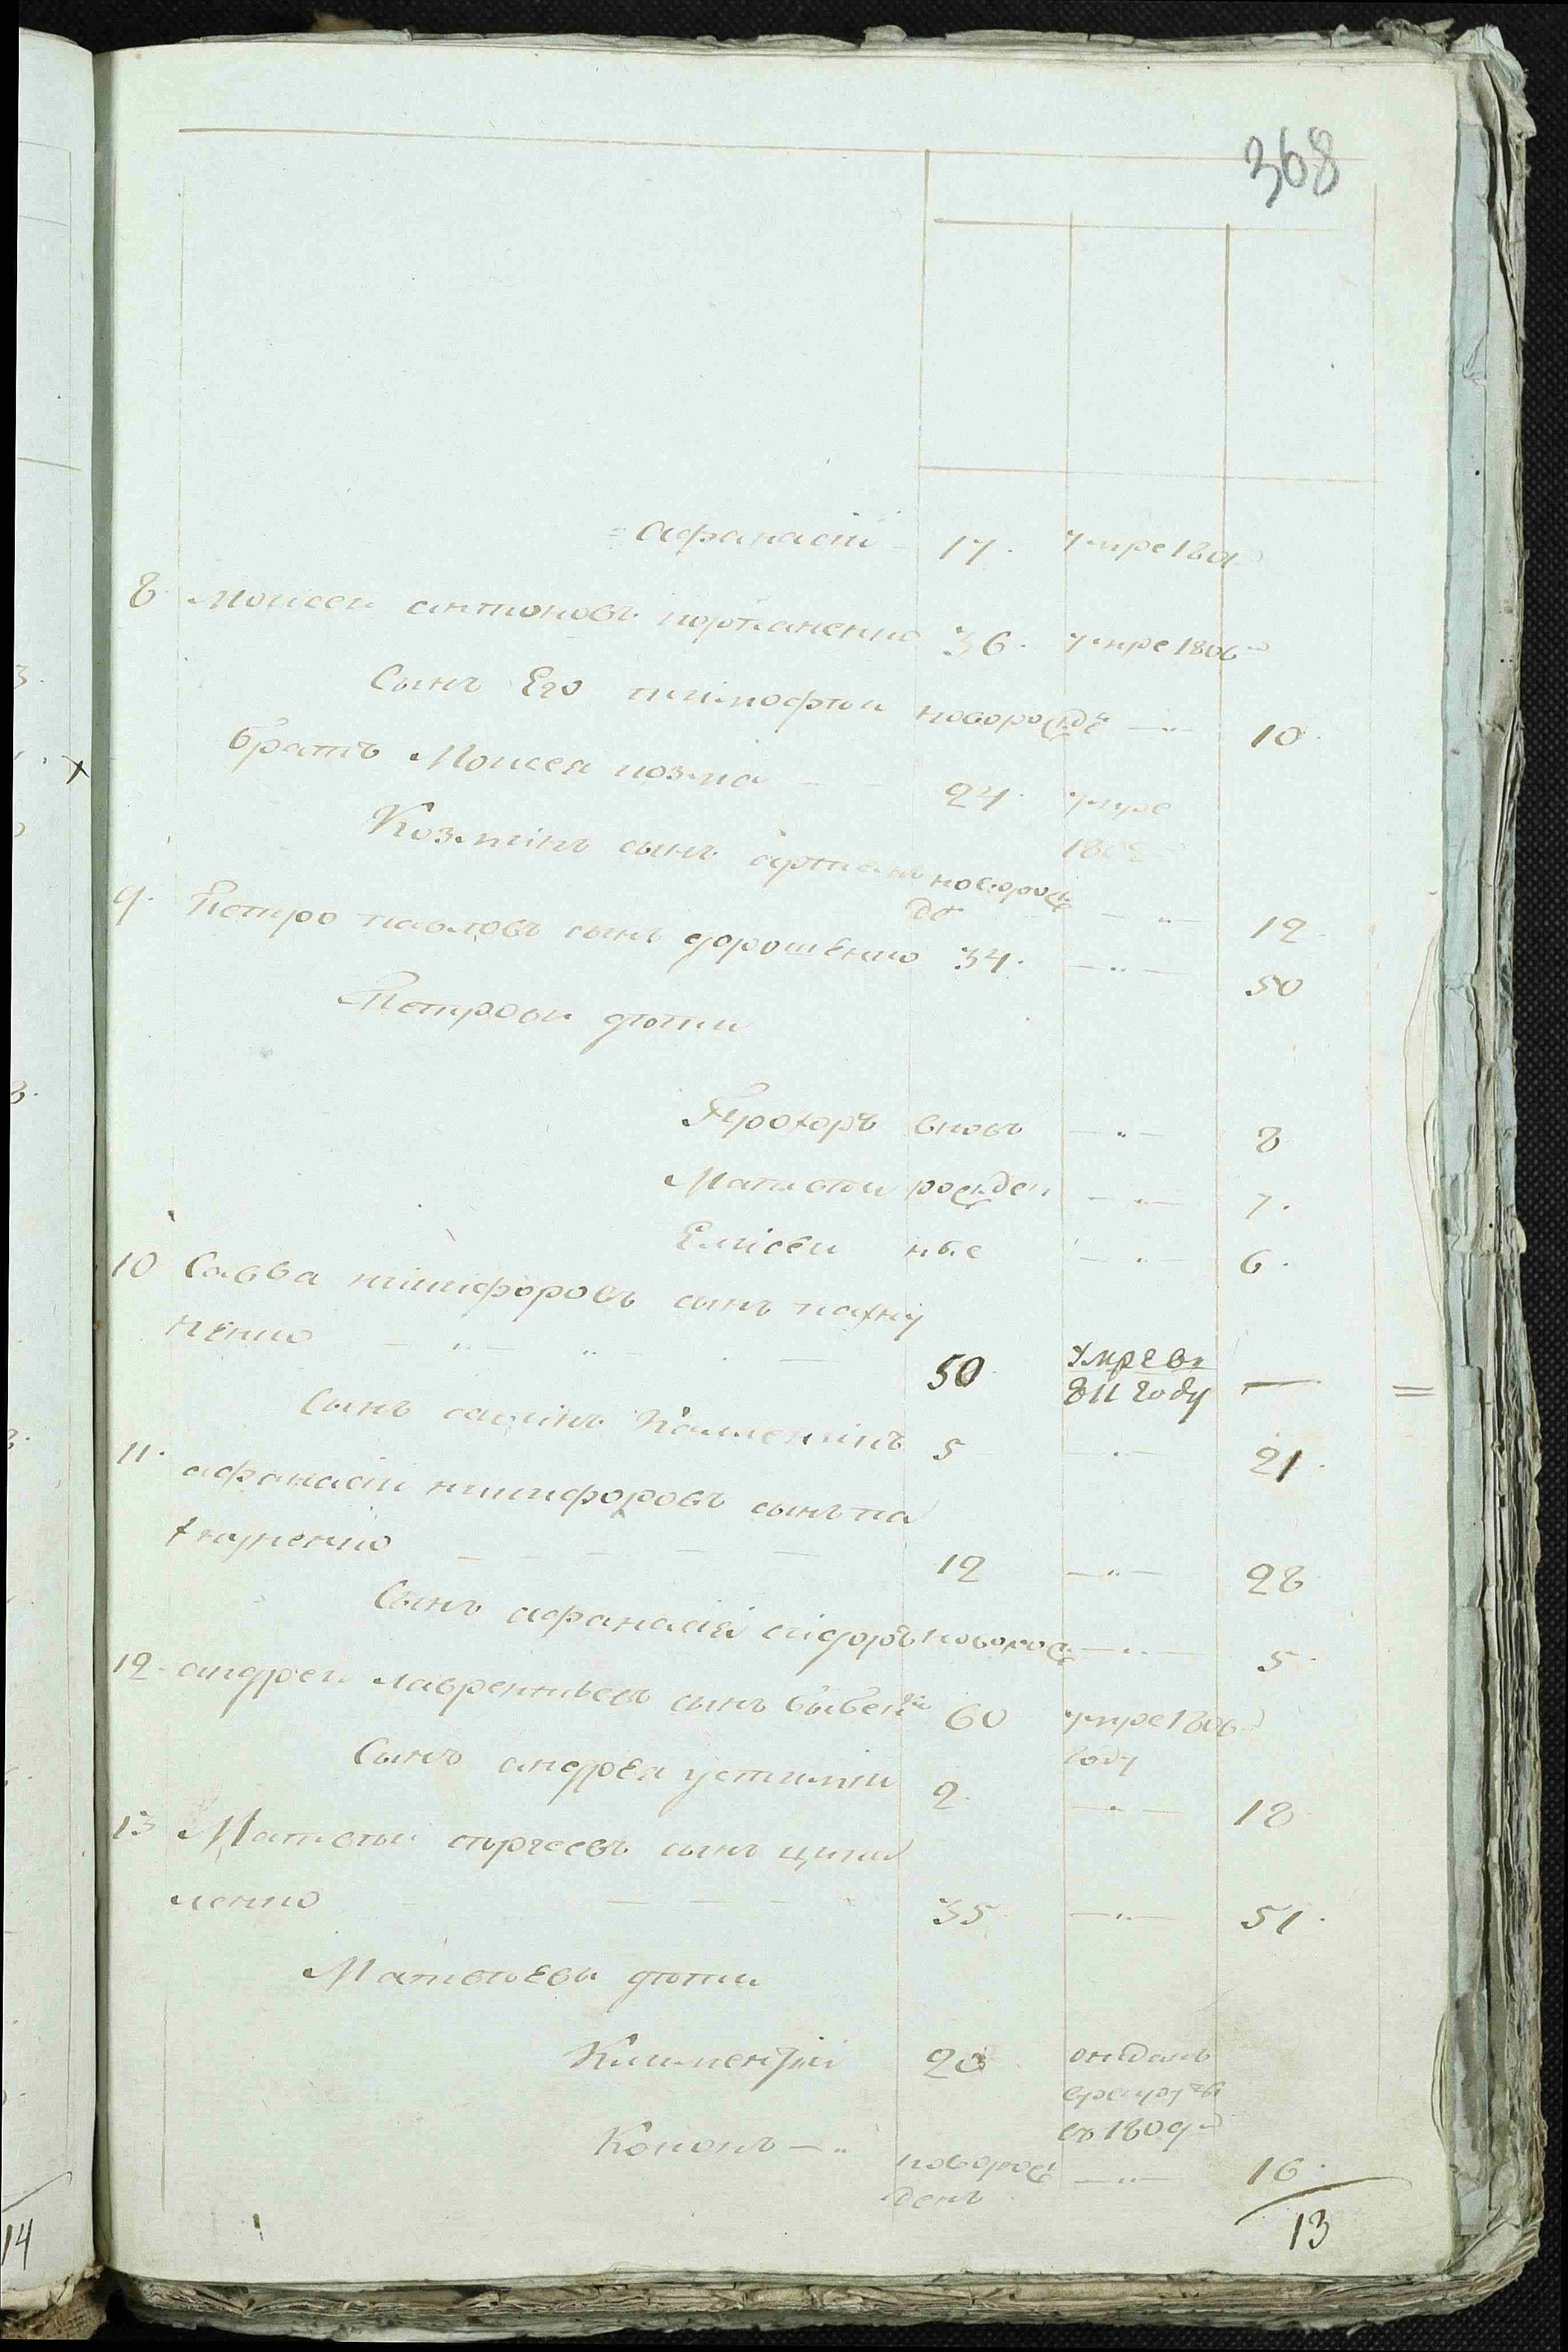 368
афанасій 17. умре 1801
8 Моисеи антоновъ портаненко 36. умре 1806
Сынъ Его тимофеи новорожде — 10.
братъ Моисея козма 24. умре
1809
Козминъ сынъ новорож
де — 12.
9. Петро павловъ сынъ дорошенко 34. — 50
Петровы дѣти
Прохоръ вновь — 8
Матвѣи рожден — 7.
Елисеи ные — 6.
10 Савва никифоровъ сынъ пахну
ченко — 50 умре въ
811 году —
Сынъ савинъ Калленикъ 5 — 21.
11. афанасіи никифоровъ сынъ па
хнученко — 12 — 28
Сынъ афанасіеи сидоръ новорож — 5.
12. андреи лаврентьевъ сынъ 60 умре 1806
году
Сынъ андрея устимъ 2. — 18
13 Матвѣи сергѣевъ сынъ
ленко — 35 — 51.
Матвѣевы дѣти
Климентіи 20 онъ данъ
врекруты
въ 1809
Кононъ — новорож
денъ — 16.
13
14